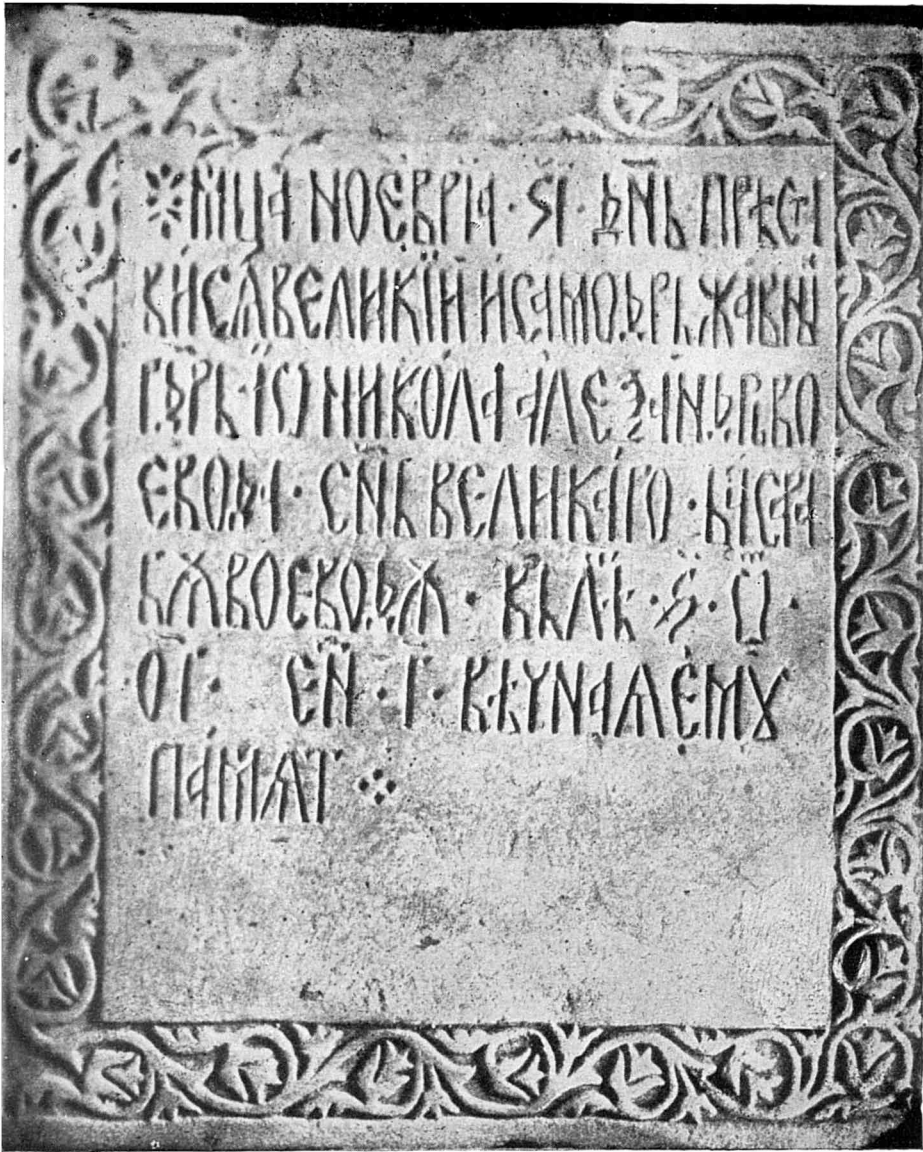 мц҃а ноеврїа · ѕ҃ї · дн҃ь прѣсті
ви́ сѧ великїй и самодрьжавнїи
гд҃рь · їѡ никола алеѯандрь во
евода · сн҃ь великаго · басара
бѫ воеводѫ · въ лѣ · ѕ҃ · ѿ ·
о҃г · ен҃ · г҃ · вѣчнаѧ емꙋ
памѧт